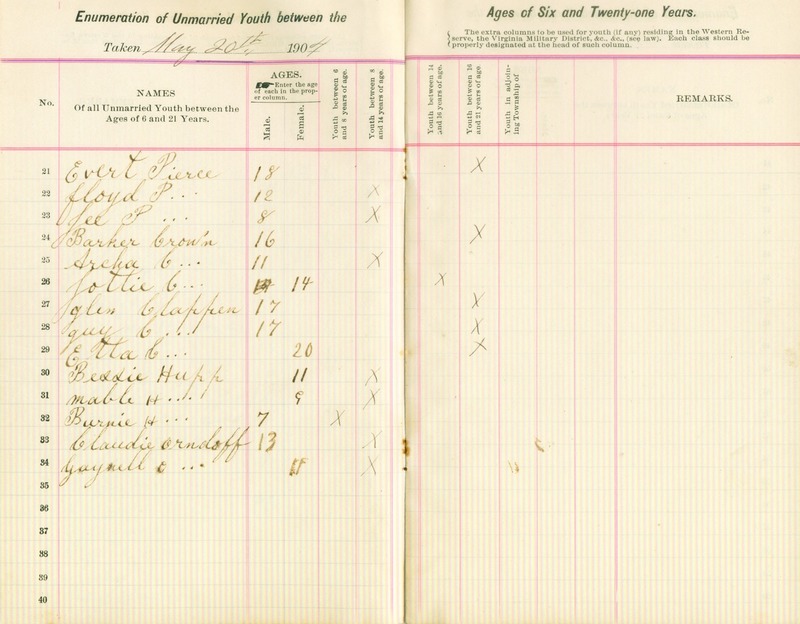 Enumeration of Unmarried Youth between the
Ages of Six and Twenty-one Years.
Taken May 20th, 1904
The extra columns to be used for youth (if any) residing in the Western Re-
serve, the Virginia Military District, &c., &c., (see law). Each class should be
properly designated at the head of such column.
No.
NAMES
Of all Unmarried Youth between the
Ages of 6 and 21 Years.
AGES.
Enter the age
of each in the prop-
er column.
Male.
Female.
Youth between 6
and 8 years of age.
Youth between 8
and 14 years of age.
Youth between 14
and 16 years of age.
Youth between 16
and 21 years of age.
Youth in adjoin-
ing Township of
REMARKS.
21 Evert Pierce 18 X
22 floyd P... 12 X
23 Lee P... 8 X
24 Barker Crow'n 16 X
25 Archa C... 11 X
26 Lottie C... 14 X
27 glen Clappen 17 X
28 guy C.... 17 X
29 Etta C... 20 X
30 Bessie Hupp 11 X
31 mable H.... 9 X
32 Burnie H... 7 X
33 Claudie Orndoff 13 X
34 Gaynell O... X
35
36
37
38
39
40